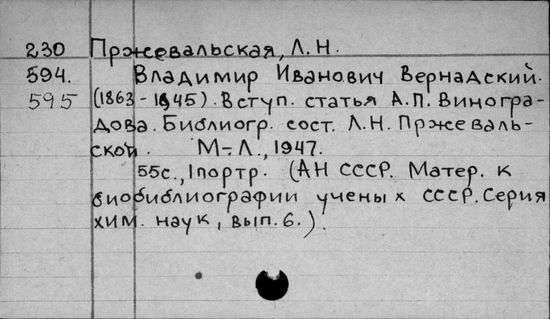 230 Пржевальская, Л.Н.
594. Владимир Иванович Вернадский.
595 (1863-1945). Вступ. статья А.П. Виногра-
дова. Библиогр. сост. Л.Н. Пржеваль-
ской. М.-Л., 1947.
55с., 1портр. (АН СССР. Матер. к
биобиблиографии ученых СССР. Серия
хим. наук, вып. 6.).